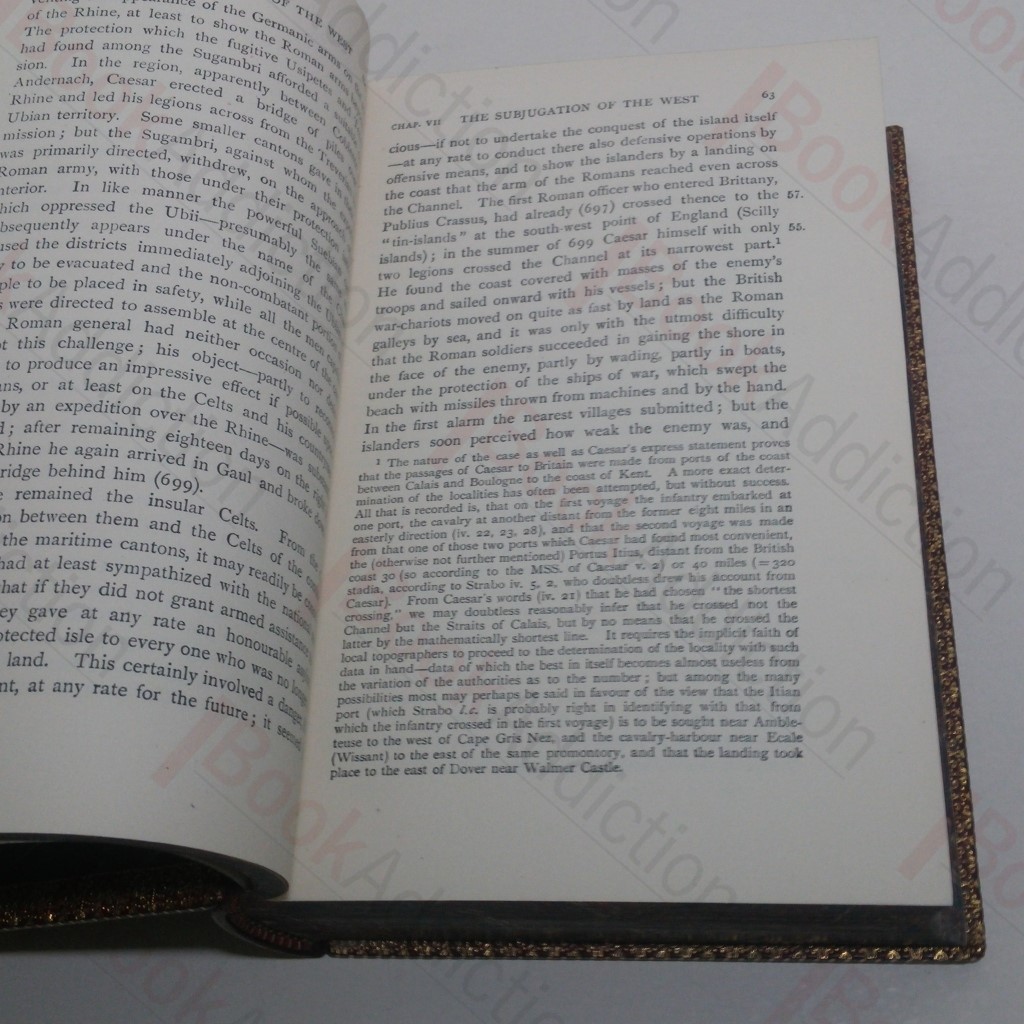 OF THE WEST
appearance of the Germanic arms on the
of the Rhine, at least to show the Roman arms
The protection which the fugitive Usipetes and
had found among the Sugambri afforded a suitable
sion. In the region, apparently between
Andernach, Caesar erected a bridge of piles
Rhine and led his legions across from the
Ubian territory. Some smaller cantons gave in
mission; but the Sugambri, against whom the
was primarily directed, withdrew, on the
Roman army, with those under their protection
nterior. In like manner the powerful
hich oppressed the Ubii—presumably the same
bsequently appears under the name of the
used the districts immediately adjoining the
y to be evacuated and the non-combatant portion
ple to be placed in safety, while all the men
s were directed to assemble at the centre of the
Roman general had neither occasion nor
t this challenge; his object—partly to
to produce an impressive effect if possible
ans, or at least on the Celts and his
by an expedition over the Rhine—was
d; after remaining eighteen days on the
Rhine he again arrived in Gaul and broke
ridge behind him (699).
e remained the insular Celts. From the
on between them and the Celts of the
the maritime cantons, it may readily be
had at least sympathized with the
hat if they did not grant armed assistance
ey gave at any rate an honourable
otected isle to every one who was no longer
land. This certainly involved a danger,
nt, at any rate for the future; it seemed
CHAP. VII THE SUBJUGATION OF THE WEST 63
cious—if not to undertake the conquest of the island itself
—at any rate to conduct there also defensive operations by
offensive means, and to show the islanders by a landing on
the coast that the arm of the Romans reached even across
the Channel. The first Roman officer who entered Brittany,
Publius Crassus, had already (697) crossed thence to the 57.
“tin-islands” at the south-west point of England (Scilly
islands); in the summer of 699 Caesar himself with only 55.
two legions crossed the Channel at its narrowest part.¹
He found the coast covered with masses of the enemy's
troops and sailed onward with his vessels; but the British
war-chariots moved on quite as fast by land as the Roman
galleys by sea, and it was only with the utmost difficulty
that the Roman soldiers succeeded in gaining the shore in
the face of the enemy, partly by wading, partly in boats,
under the protection of the ships of war, which swept the
beach with missiles thrown from machines and by the hand.
In the first alarm the nearest villages submitted; but the
islanders soon perceived how weak the enemy was, and
¹ The nature of the case as well as Caesar's express statement proves
that the passages of Caesar to Britain were made from ports of the coast
between Calais and Boulogne to the coast of Kent. A more exact deter-
mination of the localities has often been attempted, but without success.
All that is recorded is, that on the first voyage the infantry embarked at
one port, the cavalry at another distant from the former eight miles in an
easterly direction (iv. 22, 23, 28), and that the second voyage was made
from that one of those two ports which Caesar had found most convenient,
the (otherwise not further mentioned) Portus Itius, distant from the British
coast 30 (so according to the MSS. of Caesar v. 2) or 40 miles (=320
stadia, according to Strabo iv. 5, 2, who doubtless drew his account from
Caesar). From Caesar's words (iv. 21) that he had chosen “the shortest
crossing,” we may doubtless reasonably infer that he crossed not the
Channel but the Straits of Calais, but by no means that he crossed the
latter by the mathematically shortest line. It requires the implicit faith of
local topographers to proceed to the determination of the locality with such
data in hand—data of which the best in itself becomes almost useless from
the variation of the authorities as to the number; but among the many
possibilities most may perhaps be said in favour of the view that the Itian
port (which Strabo l.c. is probably right in identifying with that from
which the infantry crossed in the first voyage) is to be sought near Amble-
teuse to the west of Cape Gris Nez, and the cavalry-harbour near Ecale
(Wissant) to the east of the same promontory, and that the landing took
place to the east of Dover near Walmer Castle.
BookAddiction